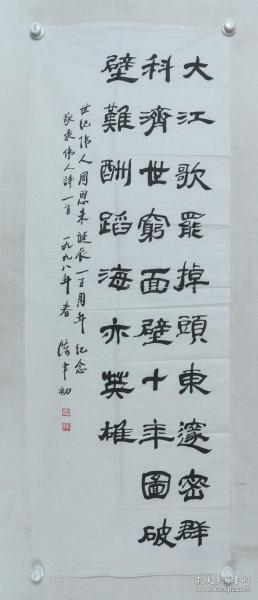 大江歌罷掉頭東邃密群
科濟世窮面壁十年圖破
壁難酬蹈海亦英雄
世纪伟人周恩来誕辰一百周年纪念
敬录伟人詩一首 一九九八年春
初